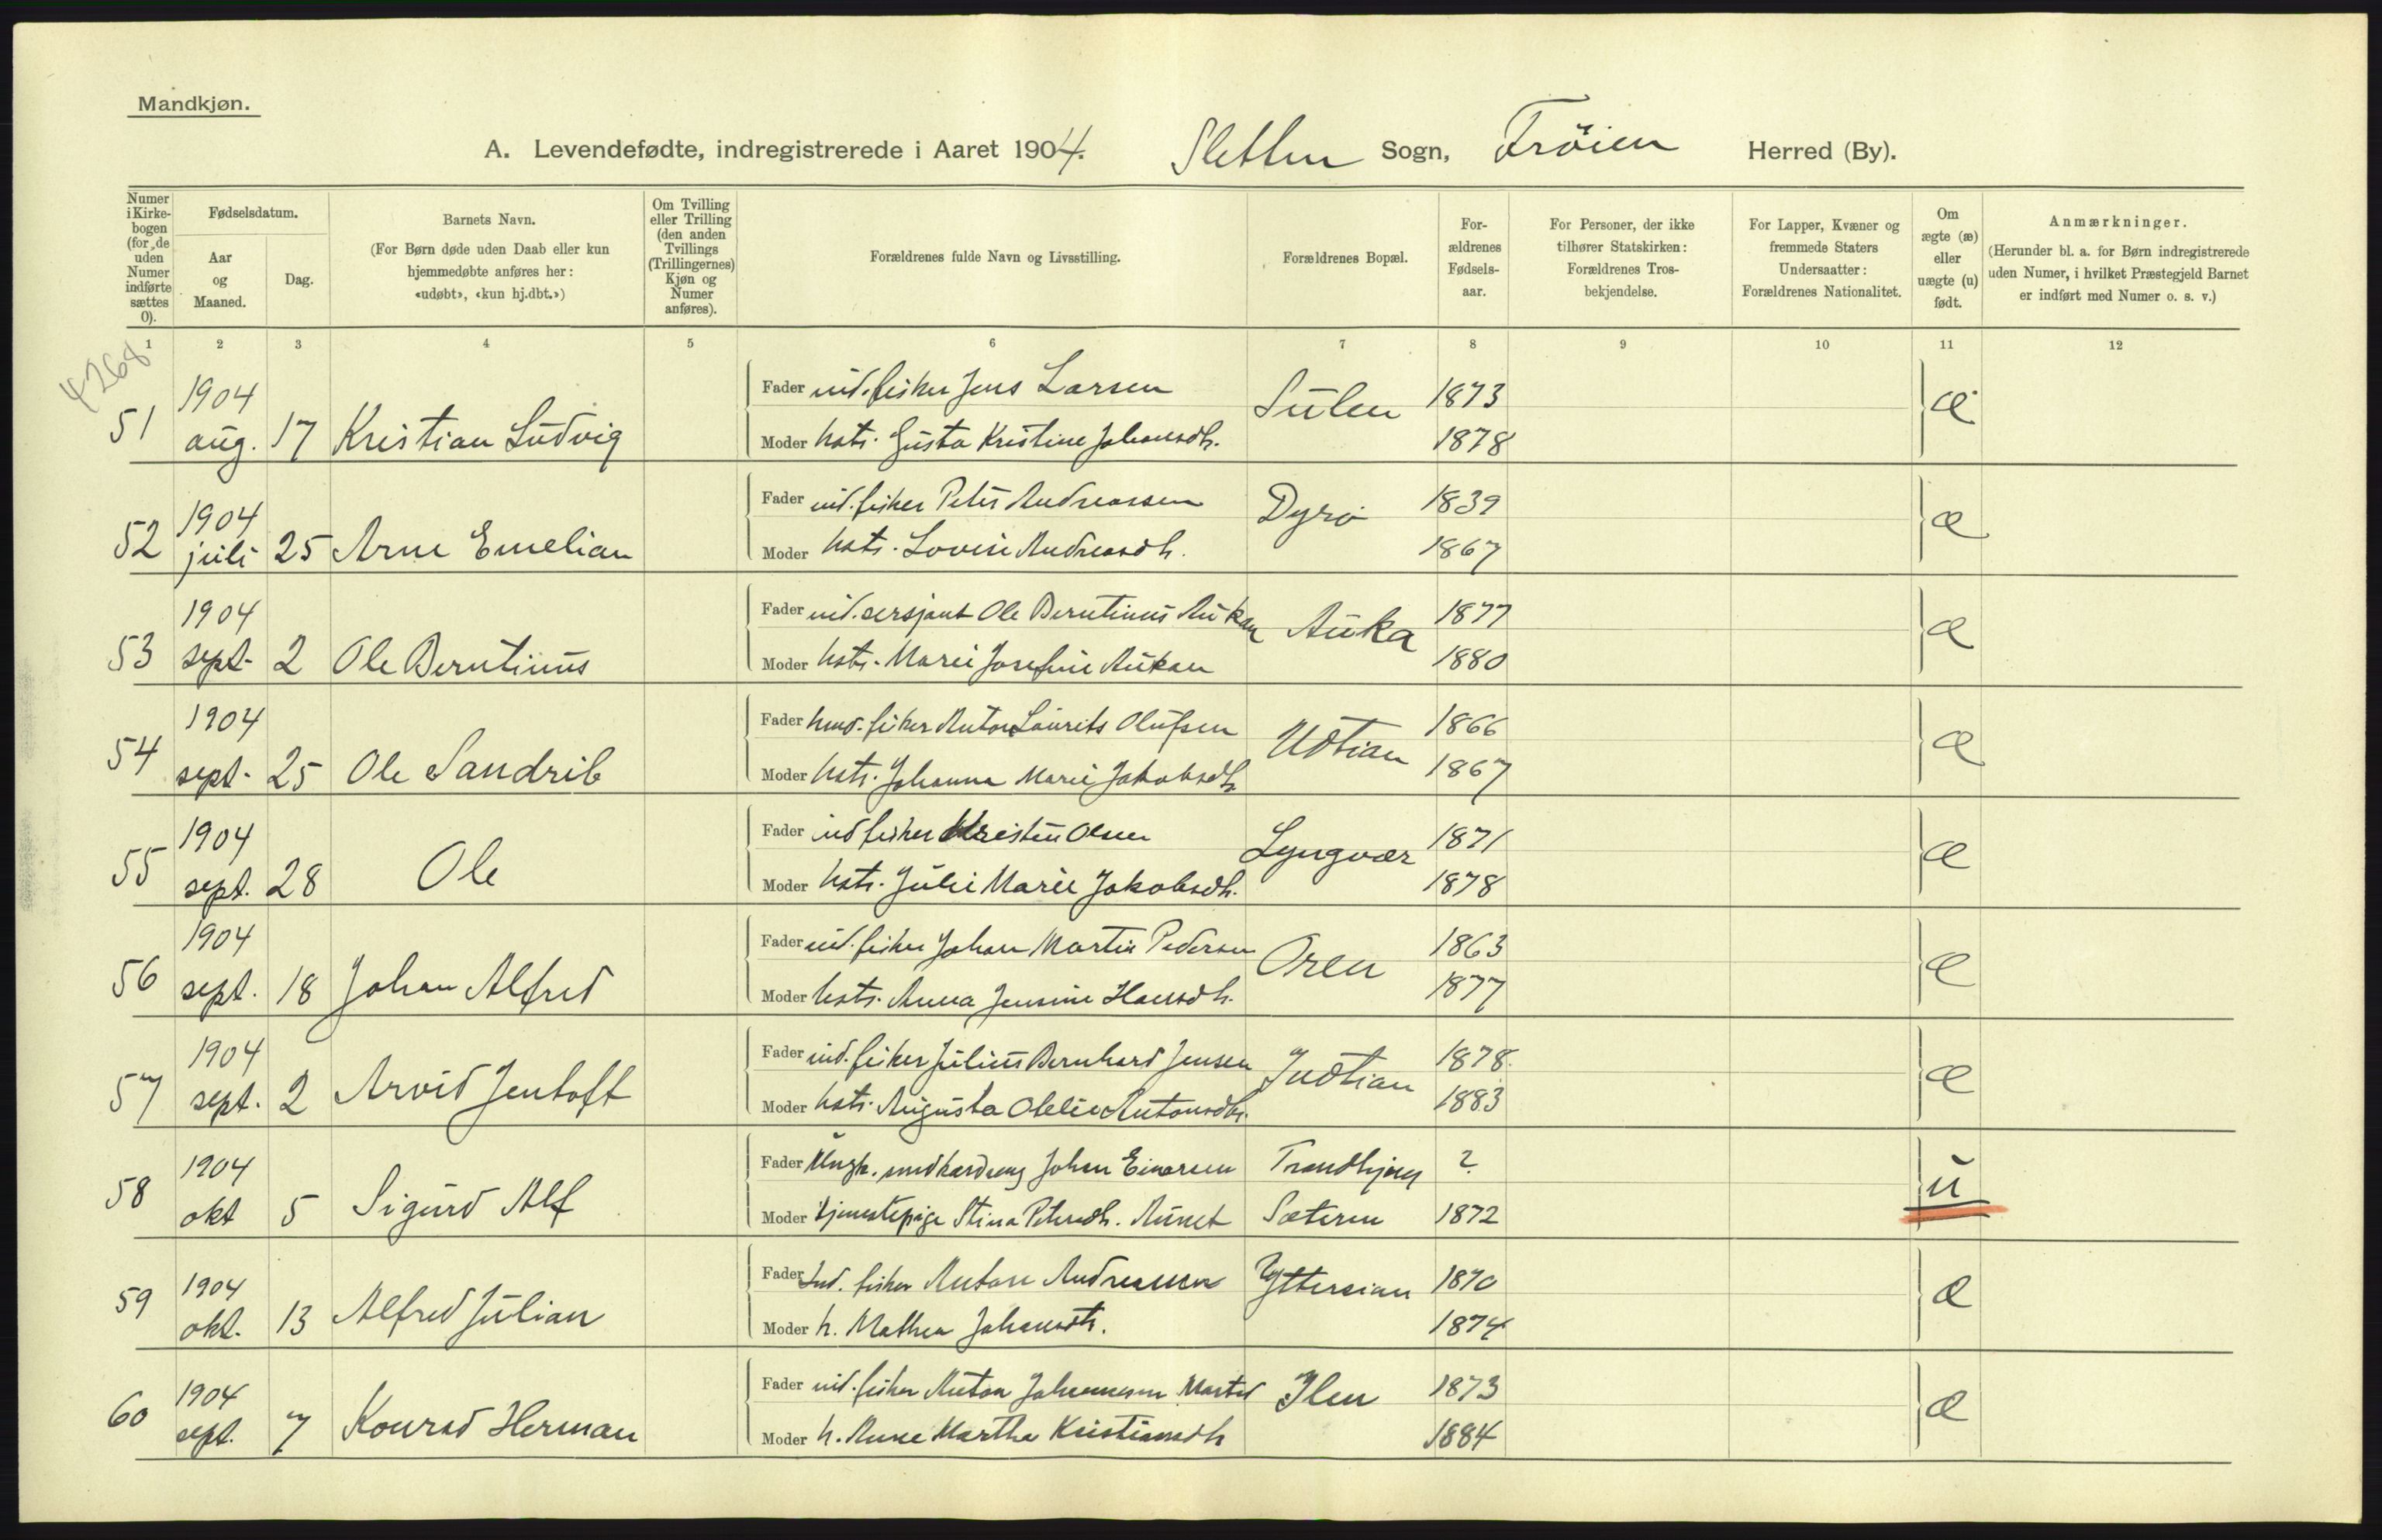 Mandkjøn.
A. Levendefødte, indregistrerede i Aaret 1904. Sletten Sogn, Frøien Herred (By).
Numer i Kirke-bogen (for de uden Numer indførte sættes 0).
Fødselsdatum.
Aar og Maaned.
Dag.
Barnets Navn.
(For Børn døde uden Daab eller kun hjemmedøbte anføres her: «udøbt», «kun hj.dbt.»)
Om Tvilling eller Trilling (den anden Tvillings (Trillingernes) Kjøn og Numer anføres).
Forældrenes fulde Navn og Livsstilling.
Forældrenes Bopæl.
For-ældrenes Fødsels-aar.
For Personer, der ikke tilhører Statskirken: Forældrenes Tros-bekjendelse.
For Lapper, Kvæner og fremmede Staters Undersaatter: Forældrenes Nationalitet.
Om ægte (æ) eller uægte (u) født.
Anmærkninger.
(Herunder bl. a. for Børn indregistrerede uden Numer, i hvilket Præstegjeld Barnet er indført med Numer o. s. v.)
1 2 3 4 5 6 7 8 9 10 11 12
4268
51 1904 aug. 17 Kristian Ludvig
Fader ind. fisker Jens Larsen Sulen 1873 æ
Moder hstr. Gusta Kristine Johansdtr. 1878
52 1904 juli 25 Arne Emelian
Fader ind. fisker Peter Andreassen Dyrø 1839 æ
Moder hstr. Lovise Andreasdtr. 1867
53 1904 sept. 2 Ole Berntinus
Fader ind. sersjant Ole Berntinus Aukan Auka 1877 æ
Moder hstr. Marie Josefine Aukan 1880
54 1904 sept. 25 Ole Sandrib
Fader hmd. fisker Anton Laurits Olufsen Udtian 1866 æ
Moder hstr. Johanna Marie Jakobsdtr 1867
55 1904 sept. 28 Ole
Fader ind fisker Kristen Olsen Lyngvær 1871 æ
Moder hstr. Julie Marie Jakobsdtr. 1878
56 1904 sept. 18 Johan Alfred
Fader ind. fisker Johan Martin Pedersen Oren 1863 æ
Moder hstr. Anna Jensine Hansdtr. 1877
57 1904 sept. 2 Arvid Jentoft
Fader ind. fisker Julius Bernhard Jensen Indtian 1878 æ
Moder hstr. Augusta Olelie Antonsdtr. 1883
58 1904 okt 5 Sigurd Alf
Fader Ungk. Johan Einarsen Trondhjem ? u
Moder tjenestepige Stina Petersdtr. Aunet Sæteren 1872
59 1904 okt. 13 Alfred Julian
Fader Ind. fisker Anton Andreassen Yttersian 1870 æ
Moder h. Mathea Johansdtr. 1874
60 1904 sept. 7 Konrad Herman
Fader ind. fisker Anton Johannesen Ilen 1873 æ
Moder h. Anne Martha Kristiansdtr 1884